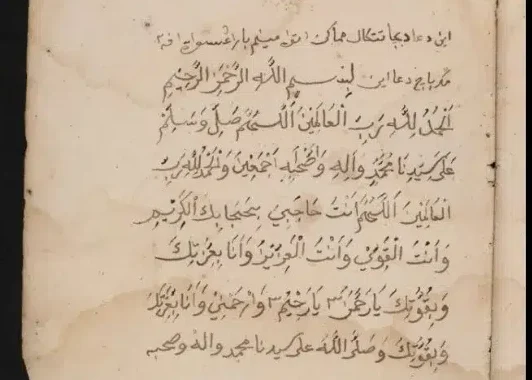 اين دعا دبجا تتكال مماكن اتو ميمنم بارڠ
مك باچ دعا اين بِسْمِ اللَّهِ الرَّحْمَنِ الرَّحِيْمِ
اَلْحَمْدُ لِلَّهِ رَبِّ الْعَالَمِيْنَ اَللَّهُمَّ صَلِّ وَسَلِّمْ
عَلَى سَيِّدِنَا مُحَمَّدٍ وَآلِهِ وَاَصْحَابِهِ اَجْمَعِيْنَ وَالْحَمْدُ لِلَّهِ رَبِّ
الْعَالَمِيْنَ اَللَّهُمَّ اَنْتَ حَاجِبِيْ بِحِجَابِكَ الْكَرِيْمِ
وَاَنْتَ الْقَوِيُّ وَاَنْتَ الْعَزِيْزُ وَاَنَا بِعِزَّتِكَ
وَبِقُوَّتِكَ يَا رَحْمَنُ ٣ يَا رَحِيْمُ ٣ وَارْحَمْنِيْ وَاَنَا بِعِزَّتِكَ
وَبِقُوَّتِكَ وَصَلَّى اللَّهُ عَلَى سيدنا محمد واله وصحبه